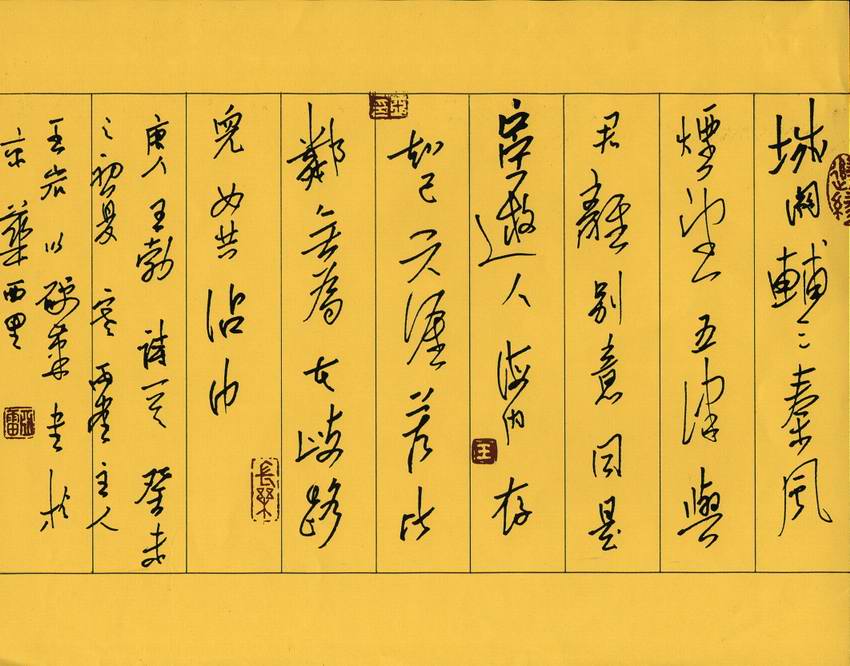 城闕輔三秦風
煙望五津與
君離別意同是
宦遊人海内存
知己天涯若比
鄰無為在歧路
兒女共沾巾
唐人王勃詩一首癸未
之初夏雨堂主人
王岩以硬筆書於
京華西里
隨緣
王
長樂